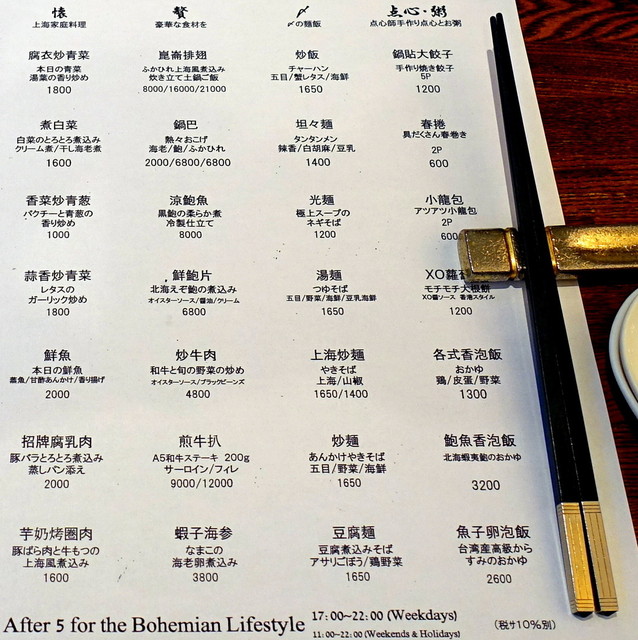 懐
上海家庭料理
腐衣炒青菜
本日の青菜
湯葉の香り炒め
1800
煮白菜
白菜のとろとろ煮込み
クリーム煮/干し海老煮
1600
香菜炒青葱
パクチーと青葱の
香り炒め
1000
蒜香炒青菜
レタスの
ガーリック炒め
1800
鮮魚
本日の鮮魚
蒸魚/甘酢あんかけ/香り揚げ
2000
招牌腐乳肉
豚バラとろとろ煮込み
蒸しパン添え
2000
芋奶烤圈肉
豚ばら肉と牛もつの
上海風煮込み
1600
贅
豪華な食材を
崑崙排翅
ふかひれ上海風煮込み
炊き立て土鍋ご飯
8000/16000/21000
鍋巴
熱々おこげ
海老/鮑/ふかひれ
2000/6800/6800
涼鮑魚
黒鮑の柔らか煮
冷製仕立て
8000
鮮鮑片
北海えぞ鮑の煮込み
オイスターソース/醤油/クリーム
6800
炒牛肉
和牛と旬の野菜の炒め
オイスターソース/ブラックビーンズ
4800
煎牛扒
A5和牛ステーキ 200g
サーロイン/フィレ
9000/12000
蝦子海参
なまこの
海老卵煮込み
3800
〆
〆の麺飯
炒飯
チャーハン
五目/蟹レタス/海鮮
1650
坦々麺
タンタンメン
辣香/白胡麻/豆乳
1400
光麺
極上スープの
ネギそば
1200
湯麺
つゆそば
五目/野菜/海鮮/豆乳海鮮
1650
上海炒麺
やきそば
上海/山椒
1650/1400
炒麺
あんかけやきそば
五目/野菜/海鮮
1650
豆腐麺
豆腐煮込みそば
アサリごぼう/鶏野菜
1650
点心・粥
点心師手作り点心とお粥
鍋貼大餃子
手作り焼き餃子
5P
1200
春捲
具だくさん春巻き
2P
600
小龍包
アツアツ小龍包
2P
600
XO蘿
モチモチ大根餅
XO醤ソース 香港スタイル
1200
各式香泡飯
おかゆ
鶏/皮蛋/野菜
1300
鮑魚香泡飯
北海蝦夷鮑のおかゆ
3200
魚子卵泡飯
台湾産高級から
すみのおかゆ
2600
After 5 for the Bohemian Lifestyle
17:00~22:00 (Weekdays)
11:00~22:00 (Weekends & Holidays)
(税サ10%別)